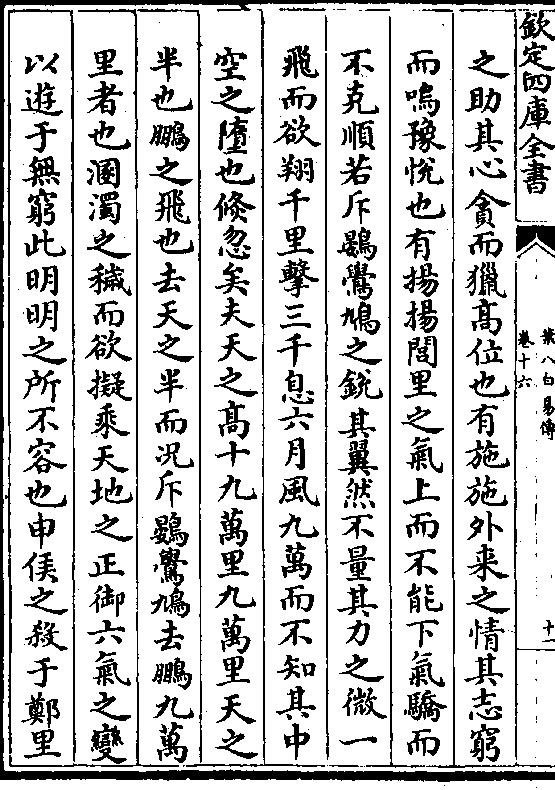 欽定四庫全書
葉八白易傳
卷十六
十一
之助其心貪而獵髙位也有施施外来之情其志窮
而鳴豫悅也有揚揚閭里之氣上而不能下氣驕而
不克順若斥鷃鷽鳩之銳其翼然不量其力之微一
飛而欲翔千里擊三千息六月風九萬而不知其中
空之墮也倐忽矣夫天之髙十九萬里九萬里天之
半也鵬之飛也去天之半而况斥鷃鷽鳩去鵬九萬
里者也溷濁之穢而欲擬乘天地之正御六氣之變
以遊于無窮此明明之所不容也申侯之殺于鄭里